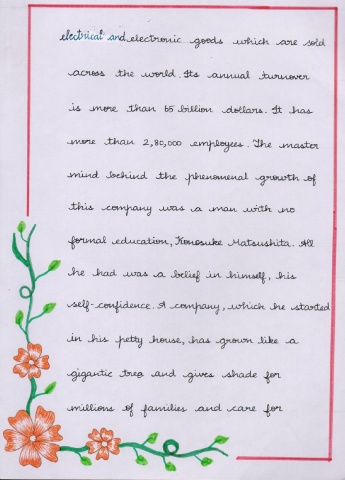 electrical and electronic goods which are sold
across the world. Its annual turnover
is more than 65 billion dollars. It has
more than 2,80,000 employees. The master
mind behind the phenomenal growth of
this company was a man with no
formal education, Konosuke Matsushita. All
he had was a belief in himself, his
self-confidence. A company, which he started
in his petty house, has grown like a
gigantic tree and gives shade for
millions of families and care for